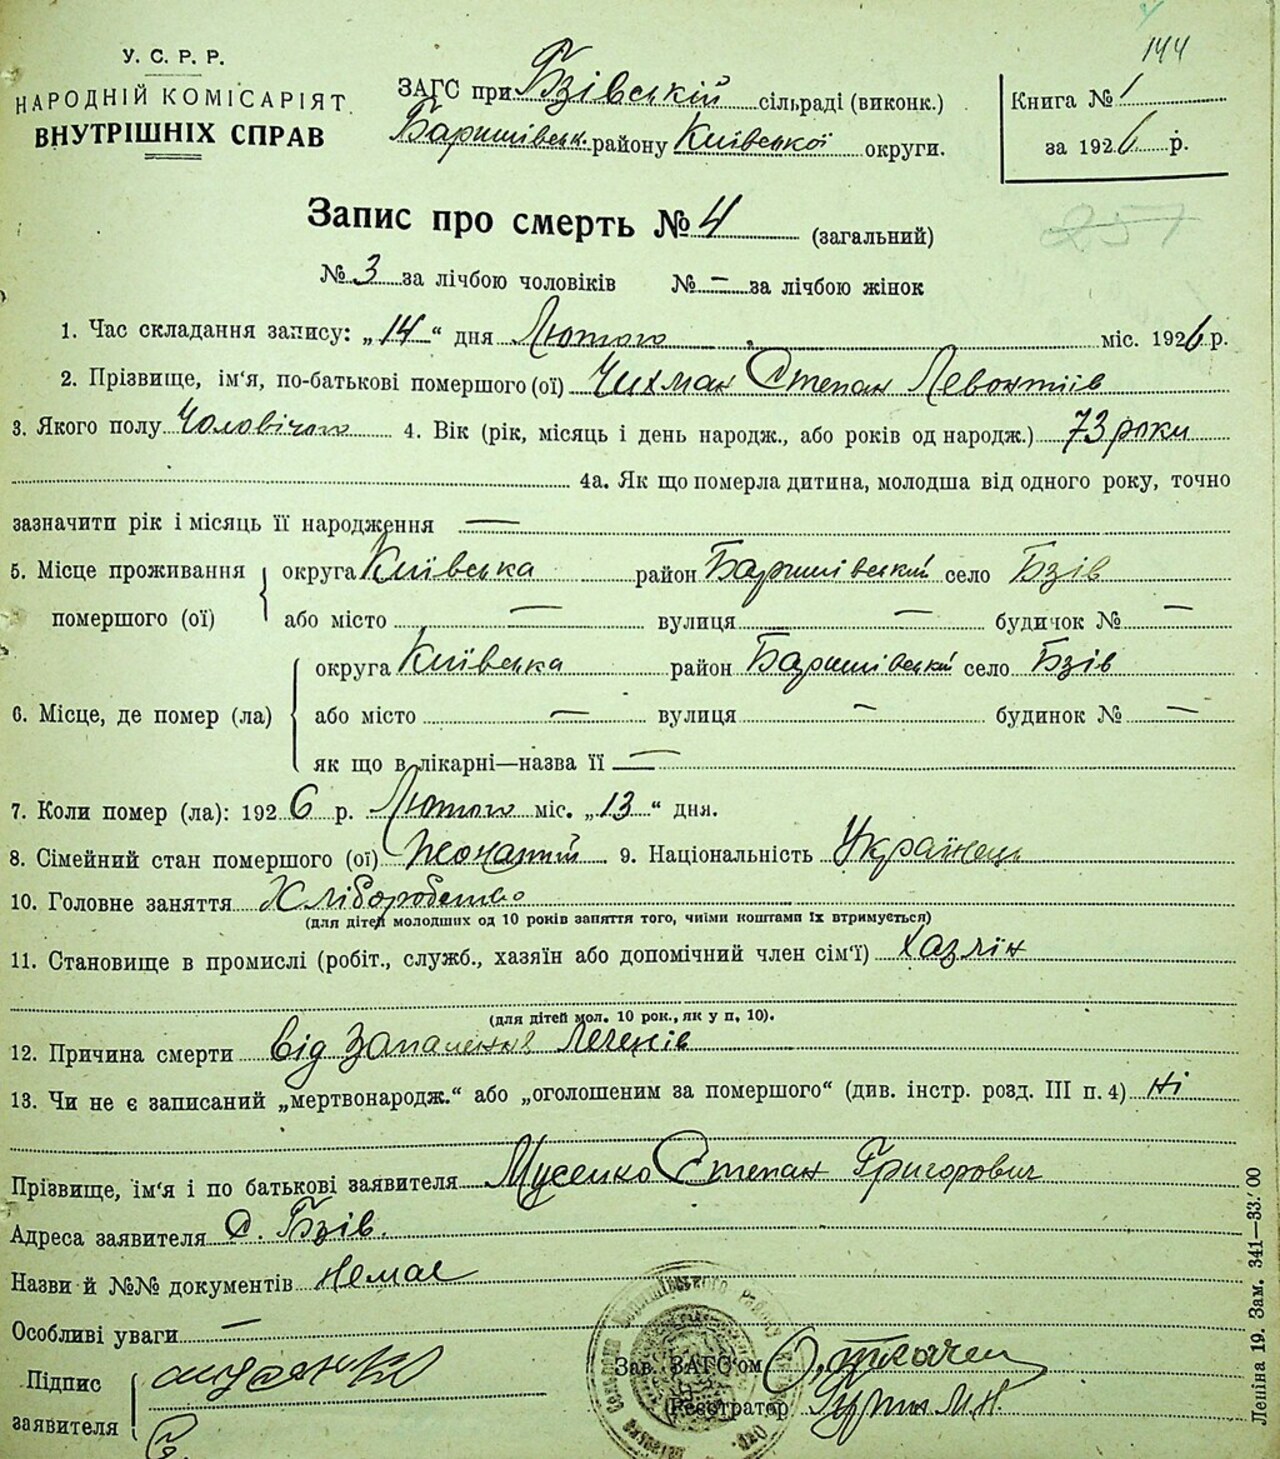 144
У. С. Р. Р.
НАРОДНІЙ КОМІСАРІЯТ
ВНУТРІШНІХ СПРАВ
ЗАГС при Бзівській сільраді (виконк.)
Баришівськ. району Київської округи.
Книга № 1
за 1926 р.
257
Запис про смерть № 4 (загальний)
№ 3 за лічбою чоловіків № — за лічбою жінок
1. Час складання запису: „14“ дня Лютого міс. 1926 р.
2. Прізвище, ім‘я, по-батькові помершого (ої) Чихман Степан Левонтіів
3. Якого полу Чоловічого 4. Вік (рік, місяць і день народж., або років од народж.) 73 роки
4а. Як що померла дитина, молодша від одного року, точно
зазначити рік і місяць її народження —
5. Місце проживання помершого (ої) округа Київська район Баришівський село Бзів
або місто — вулиця — будинок № —
6. Місце, де помер (ла) округа Київська район Баришівський село Бзів
або місто — вулиця — будинок № —
як що в лікарні—назва її —
7. Коли помер (ла): 1926 р. Лютого міс. „13“ дня.
8. Сімейний стан помершого (ої) Жонатий 9. Національність Українець
10. Головне заняття Хліборобство
(для дітей молодших од 10 років заняття того, чиїми коштами їх втримується)
11. Становище в промислі (робіт., служб., хазяїн або допомічний член сім‘ї) Хазяїн
(для дітей мол. 10 рок., як у п. 10).
12. Причина смерти від запалення легенів
13. Чи не є записаний „мертвонародж.“ або „оголошеним за помершого“ (див. інстр. розд. III п. 4) Ні
Прізвище, ім‘я і по батькові заявителя Мусенко Степан Григорович
Адреса заявителя С. Бзів.
Назви й №№ документів Немає
Особливі уваги —
Підпис заявителя
Зав. ЗАГС‘ом О. Ткачен
Реєстратор
Леніна 19. Зам. 341—33.